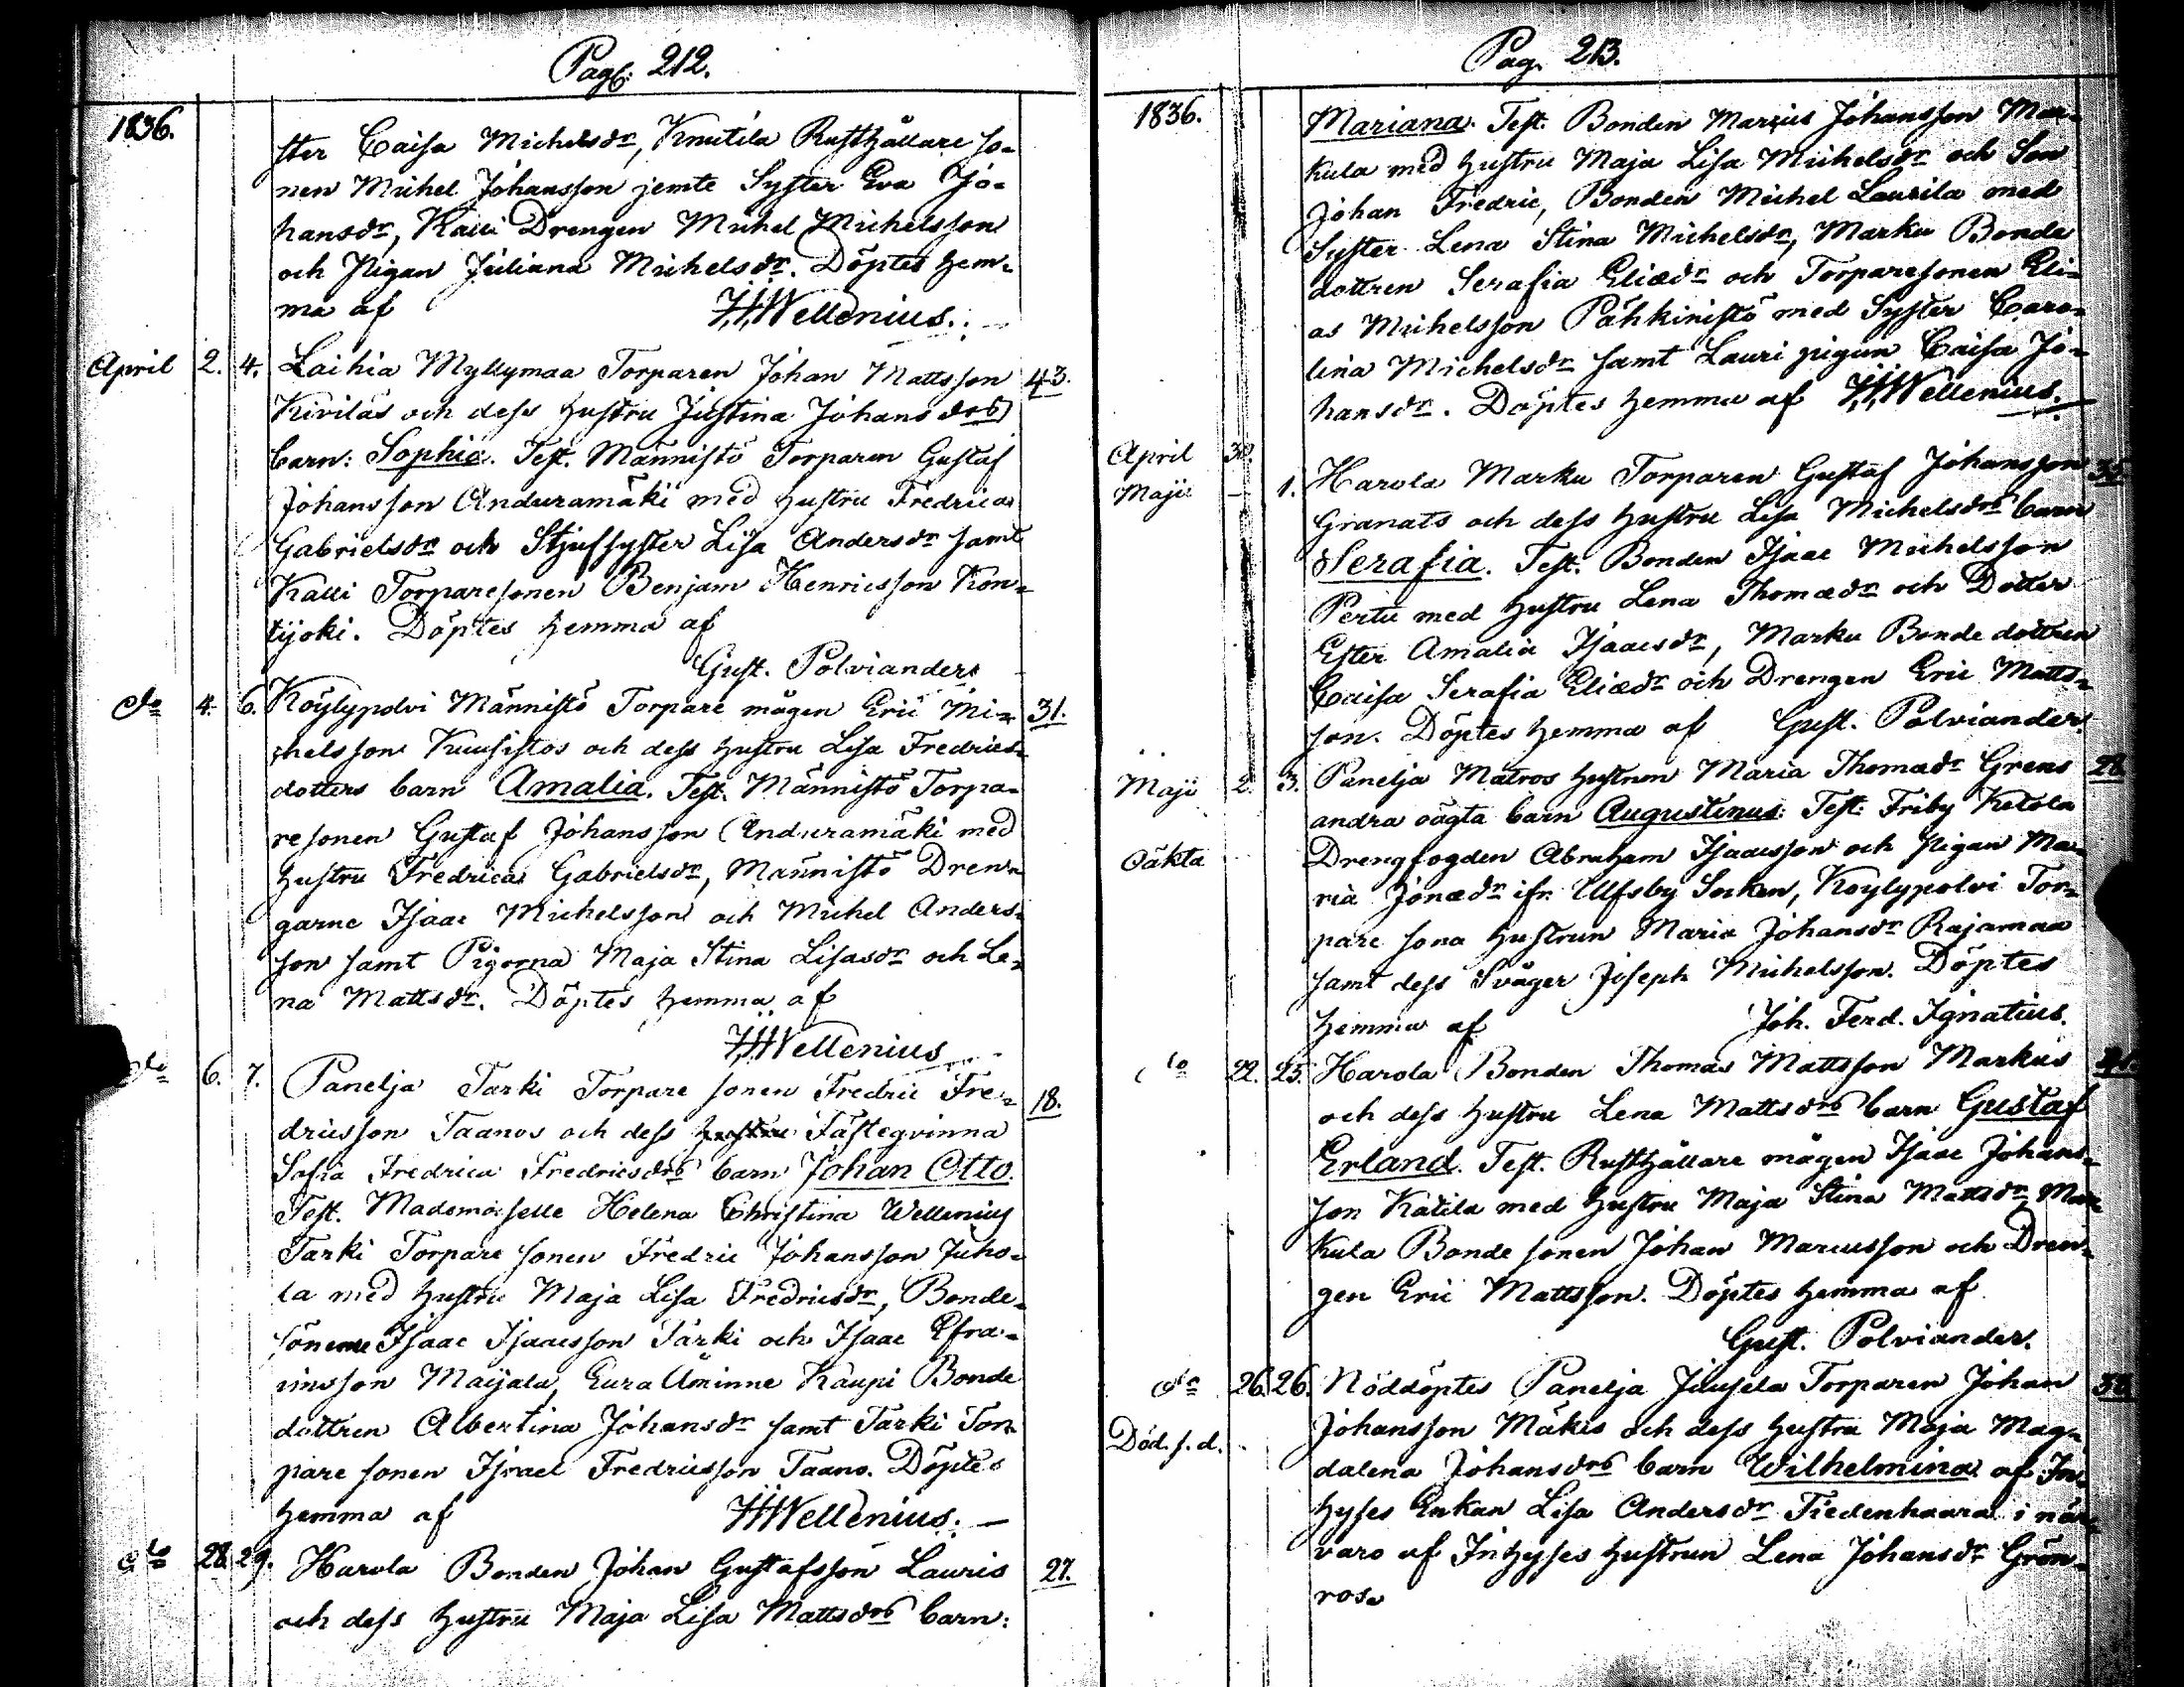 Pag: 212.
1836.
ster Caisa Michelsdr, Knutila Rusthållare so-
nen Michel Johansson jemte Syster Eva Jo-
hansdr, Kalli Drengen Michel Michelsson
och Pigan Juliana Michelsdr. Döptes hem-
ma af Wellenius.
April 2. 4. Laihia Myllymaa Torparen Johan Mattsson 43.
Kivilas och dess hustru Justina Johansdrs
barn: Sophia. Test. Männistö Torparen Gustaf
Johansson Anduramäki med hustru Fredrica
Gabrielsdr och Stjufsyster Lisa Andersdr samt
Kalli Torparesonen Benjam Henricsson Kon-
tijoki. Döptes hemma af
Gust. Polviander
do 4. 6. Köylypolvi Männistö Torpare mågen Eric Mi- 31.
chelsson Kuusistos och dess hustru Lisa Fredrics-
dotters barn Amalia. Test. Männistö Torpa-
resonen Gustaf Johansson Anduramäki med
hustru Fredrica Gabrielsdr, Männistö Dren-
garne Isaac Michelsson och Michel Anders-
son samt Pigorna Maja Stina Lisasdr och Le-
na Mattsdr. Döptes hemma af
Wellenius
do 6. 7. Panelja Tarki Torpare sonen Fredric Fre- 18.
dricsson Taanos och dess hustru Fästeqvinna
Sofia Fredrica Fredricsdrs barn Johan Otto.
Test. Mademoiselle Helena Christina Wellenius
Tarki Torpare sonen Fredric Johansson Juho-
la med hustru Maja Lisa Fredricsdr, Bonde-
sönerne Isaac Isaacsson Tarki och Isaac Efra-
imsson Maijala, Eura Åminne Kaupi Bonde
dottren Albertina Johansdr samt Tarki Tor-
pare sonen Israel Fredricsson Taano. Döptes
hemma af Wellenius.
do 28. 29. Harola Bonden Johan Gustafsson Lauris 27.
och dess hustru Maja Lisa Mattsdrs barn:
Pag. 213.
1836.
Mariana. Test. Bonden Marcus Johansson Mar-
kula med hustru Maja Lisa Michelsdr och Son
Johan Fredric, Bonden Michel Laurila med
Syster Lena Stina Michelsdr, Marku Bonde
dottren Serafia Eliædr och Torparesonen Eli-
as Michelsson Pähkinistö med Syster Caro-
lina Michelsdr samt Lauri pigan Caisa Jo-
hansdr. Döptes hemma af Wellenius.
April 30.
Maji — 1. Harola Marku Torparen Gustaf Johansson
Granats och dess hustru Lisa Michelsdrs barn
Serafia. Test. Bonden Isaac Michelsson
Pertu med hustru Lena Thomædr och Dotter
Ester Amalia Isaacsdr, Marku Bonde dottren
Caisa Serafia Eliædr och Drengen Eric Matts-
son. Döptes hemma af Gust. Polviander.
Maji 2. 3. Panelja Matros hustrun Maria Thomædr Grens 28
andra oägta barn Augustinus. Test. Friby Ketola
Oäkta Drengfogden Abraham Isaacsson och Pigan Ma-
ria Jonædr ifr. Ulfsby Socken, Köylypolvi Tor-
pare sona hustrun Maria Johansdr Rajamaa
samt dess Svåger Joseph Michelsson. Döptes
hemma af Joh. Ferd. Ignatius.
do 22. 25. Harola Bonden Thomas Mattsson Markus 41.
och dess hustru Lena Mattsdrs barn Gustaf
Erland. Test. Rusthållare mågen Isaac Johans-
son Katila med hustru Maja Stina Mattsdr, Mar-
kula Bonde sonen Johan Marcusson och Dren-
gen Eric Mattsson. Döptes hemma af
Gust. Polviander.
do 26. 26. Nöddöptes Panelja Juusela Torparen Johan 38
Johansson Mäkis och dess hustru Maja Mag-
Död. s. d. dalena Johansdrs barn Wilhelmina af In-
hyses Enkan Lisa Andersdr Fredenhaara i när-
varo af Inhyses hustrun Lena Johansdr Grön-
ros.